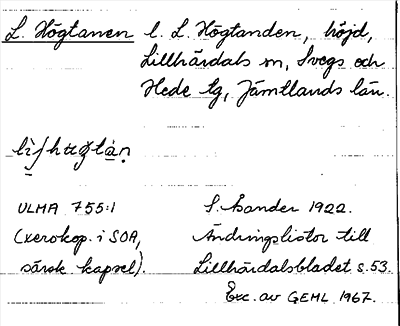 L. Högtanen l. L. Högtanden, höjd,
Lillhärdals sn, Svegs och
Hede tg, Jämtlands län.
ULMA 755:1 S. Landér 1922.
(xerokop. i SOA, Ändringslistor till
särsk. kapsel). Lillhärdalsbladet s. 53.
Exc. av GEML 1967.